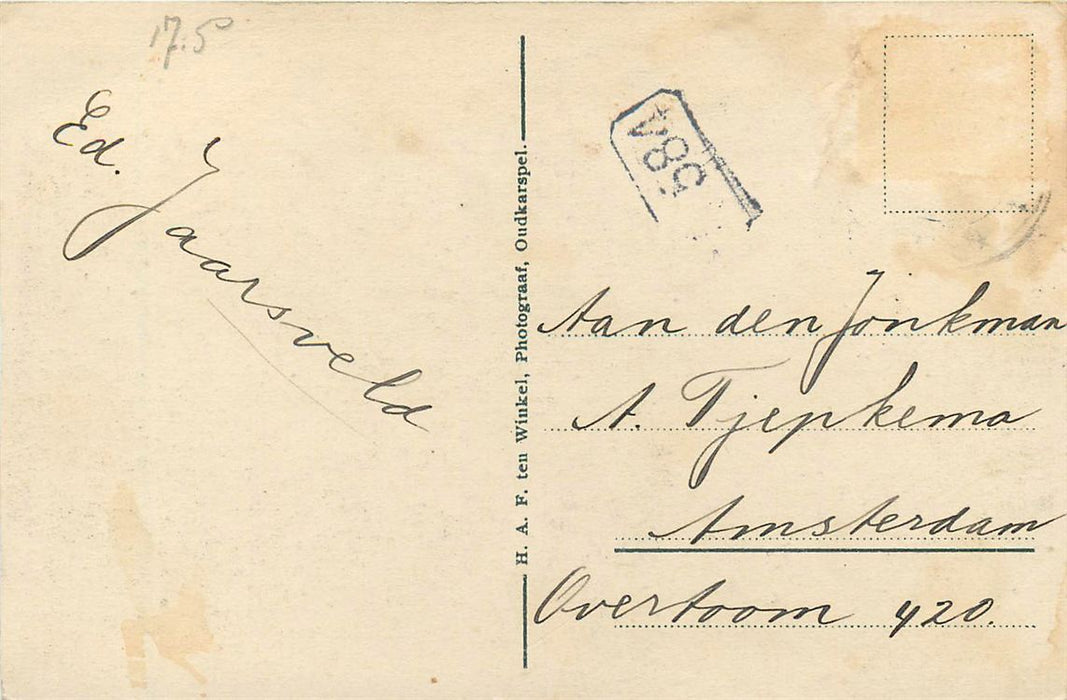 17.5
Ed. Jaarsveld
H. A. F. ten Winkel, Photograaf, Oudkarspel.
58A
Aan den Jonkman
A. Tjepkema
Amsterdam
Overtoom 420.